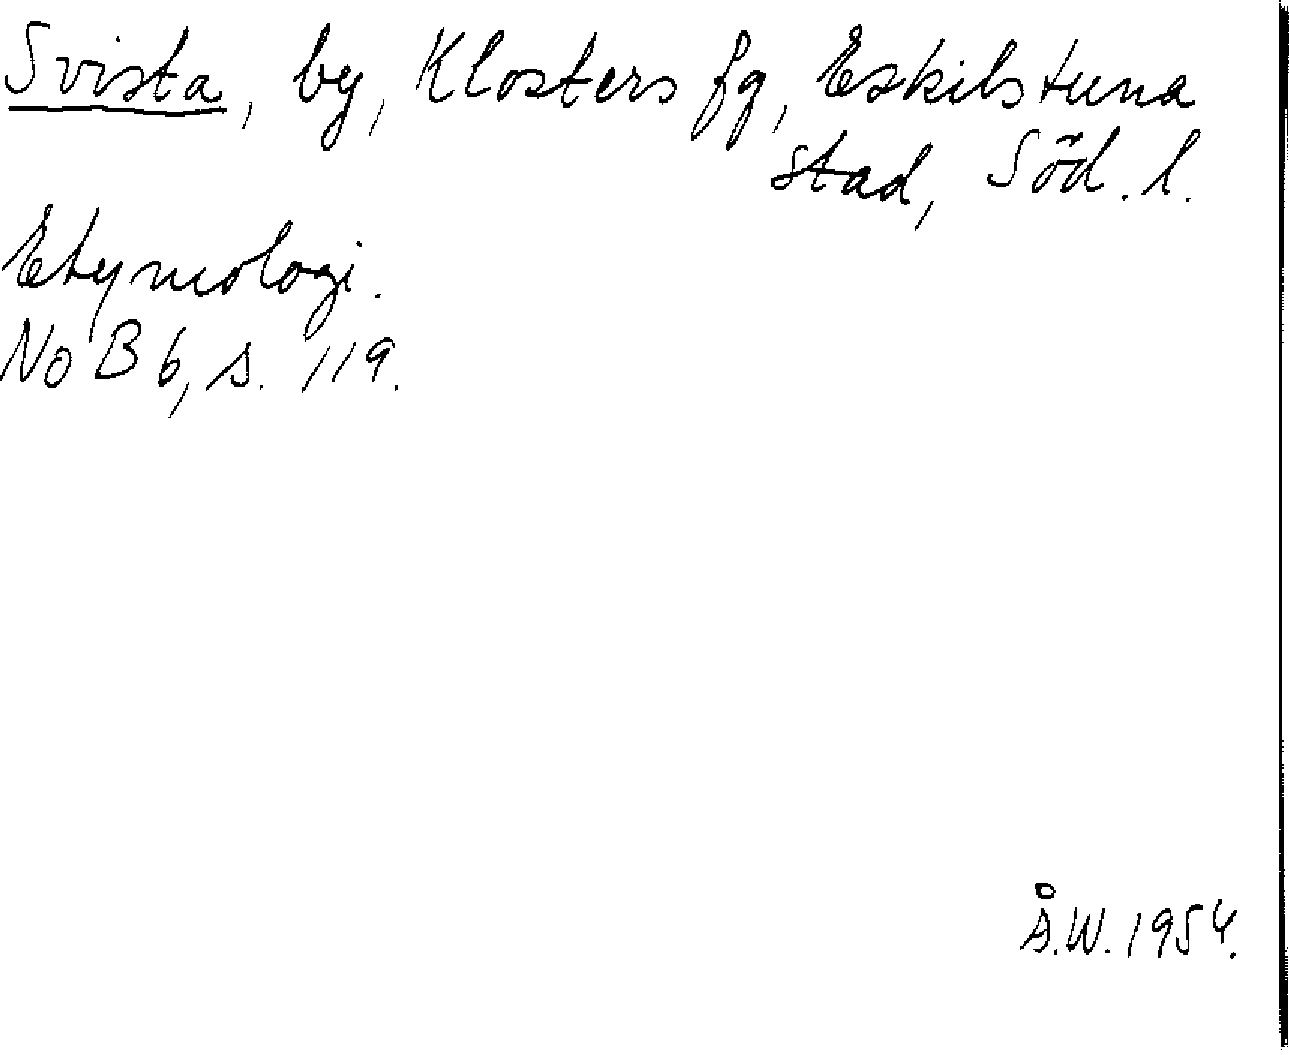 Svista, by, Klosters fg, Eskilstuna
stad, Söd. l.
Etymologi.
NoB 6, s. 119.
Å.W. 1954.